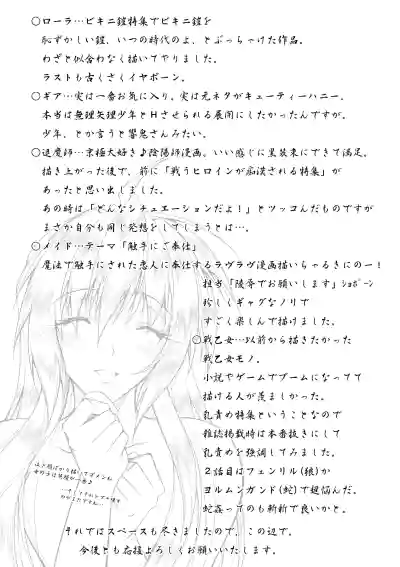 ○ローラ…ビキニ鎧特集でビキニ鎧を
恥ずかしい鎧、いつの時代のよ、とぶっちゃけた作品。
わざと似合わなく描いてやりました。
ラストも古くさくイヤボーン。
○ギア…実は一番お気に入り、実は元ネタがキューティーハニー。
本当は無理矢理少年とHさせられる展開にしたかったんですが。
少年、とか言うと響鬼さんみたい。
○退魔師…京極大好き♪陰陽師漫画。いい感じに黒装束にできて満足。
描き上がった後で、前に「戦うヒロインが痴漢される特集」が
あったと思い出しました。
あの時は「どんなシチュエーションだよ!」とツッコんだものですが
まさか自分も同じ発想をしてしまうとは…。
○メイド…テーマ「触手にご奉仕」
魔法で触手にされた恋人に奉仕するラヴラヴ漫画描いちゃるきにのー!
担当「陵辱でお願いします」ｼｮﾎﾞｰﾝ
珍しくギャグなノリで
すごく楽しんで描けました。
○戦乙女…以前から描きたかった
戦乙女モノ。
小説やゲームでブームになってて
描ける人が羨ましかった。
乳責め特集ということなので
雑誌掲載時は本番抜きにして
乳責めを強調してみました。
2話目はフェンリル(狼)か
ヨルムンガンド(蛇)で超悩んだ。
蛇姦ってのも斬新で良いかと。
それではスペースも尽きましたので、この辺で。
今後とも応援よろしくお願いいたします。